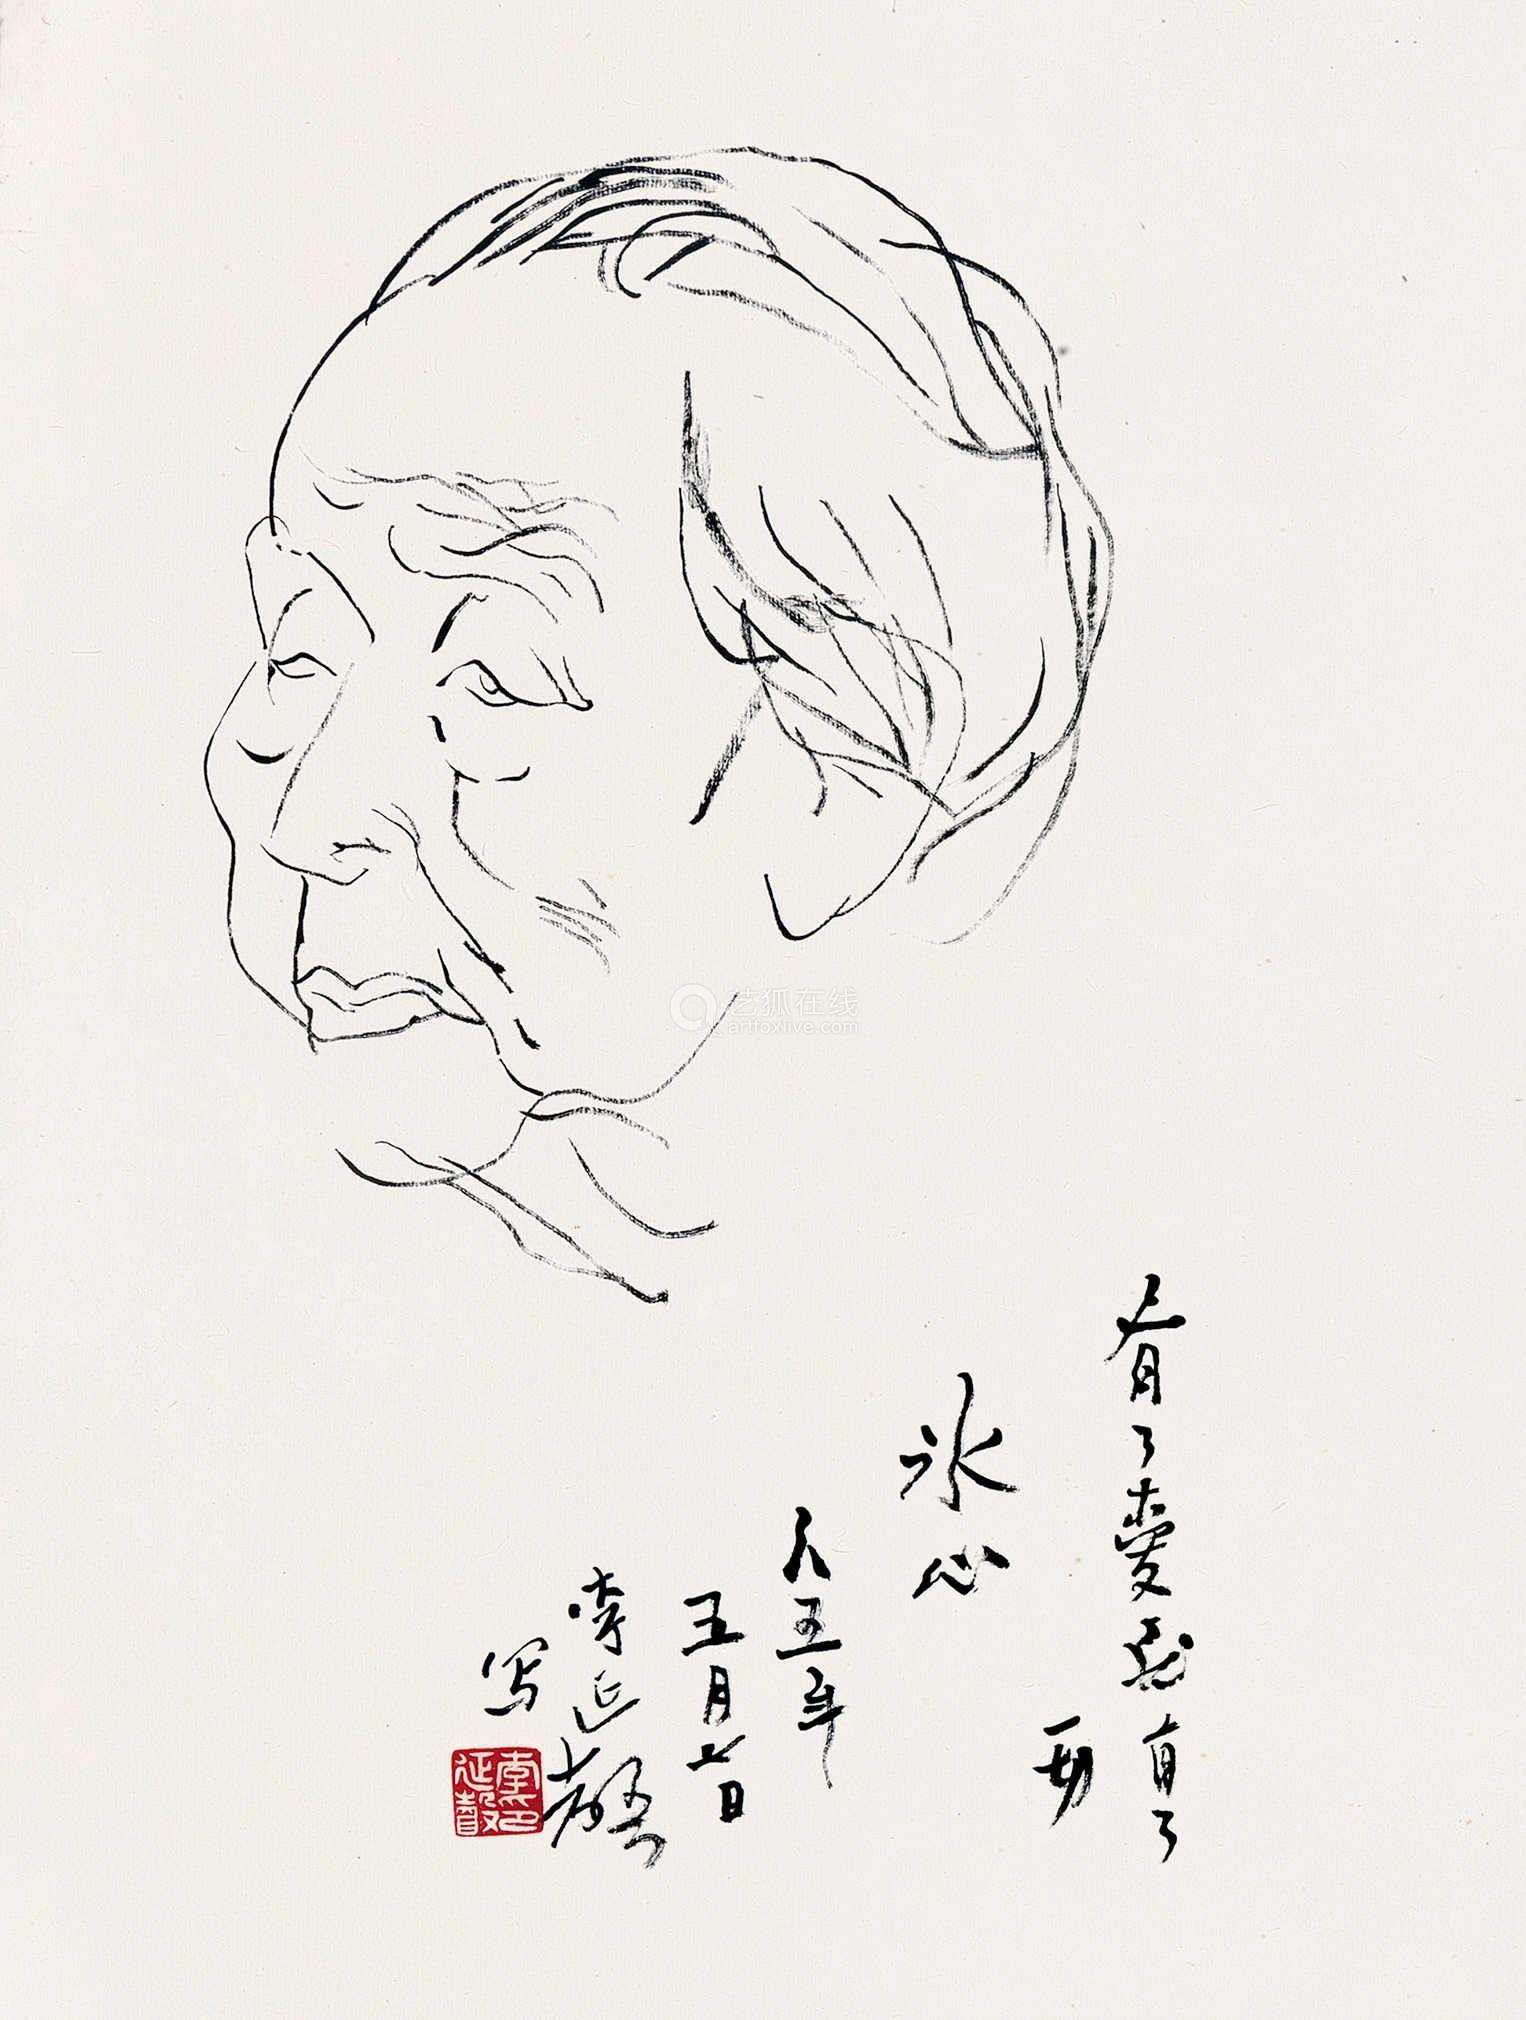 有了爱就有了
一切
冰心
八五年
五月七日
李延声
写
李延声印
艺狐在线
artfoxlive.com